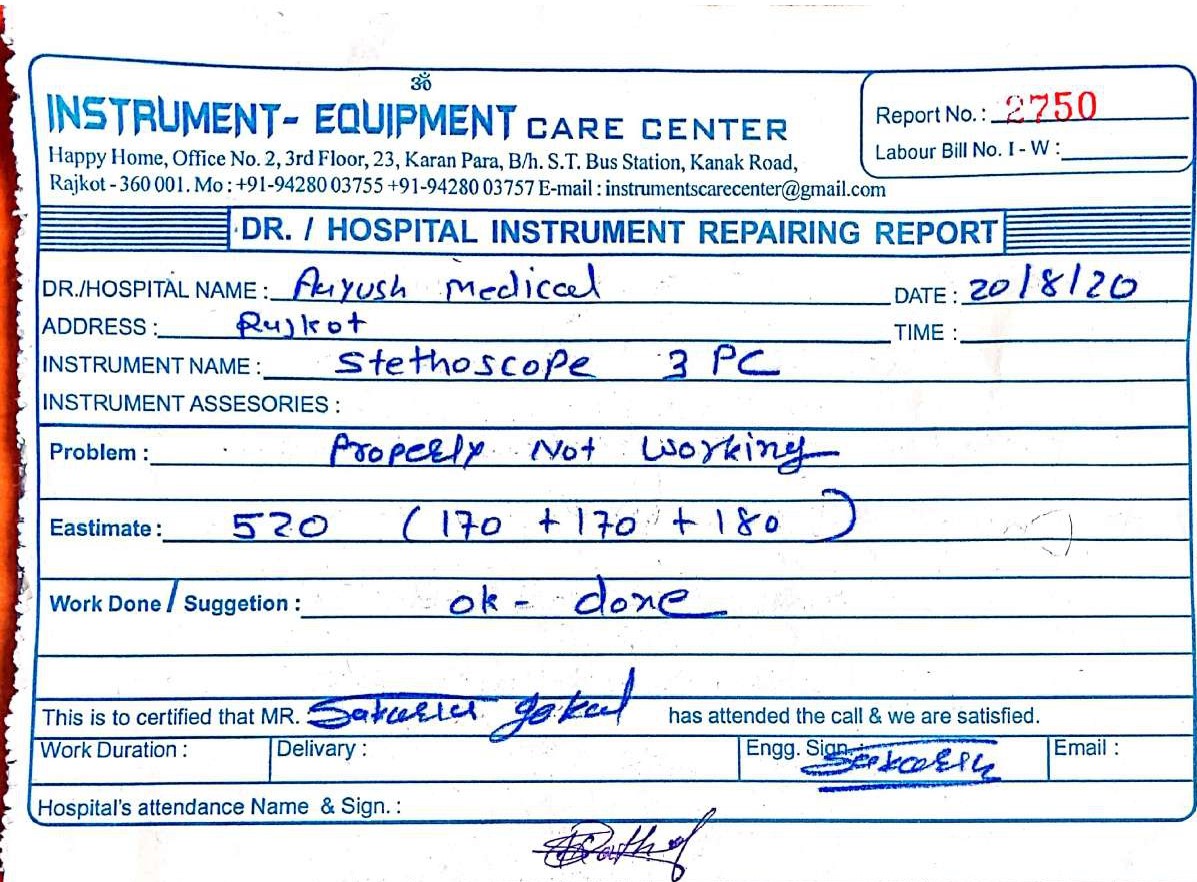 ॐ
INSTRUMENT- EQUIPMENT CARE CENTER
Happy Home, Office No. 2, 3rd Floor, 23, Karan Para, B/h. S.T. Bus Station, Kanak Road,
Rajkot - 360 001. Mo : +91-94280 03755 +91-94280 03757 E-mail : instrumentscarecenter@gmail.com
Report No. : 2750
Labour Bill No. I - W :
DR. / HOSPITAL INSTRUMENT REPAIRING REPORT
DR./HOSPITAL NAME : Aayush medical
DATE : 20/8/20
ADDRESS : Rajkot
TIME :
INSTRUMENT NAME : Stethoscope 3 PC
INSTRUMENT ASSESORIES :
Problem : Properly Not working
Eastimate : 520 (170 + 170 + 180)
Work Done / Suggetion : ok - done
This is to certified that MR. gokul has attended the call & we are satisfied.
Work Duration : Delivary : Engg. Sign. : Email :
Hospital's attendance Name & Sign. :